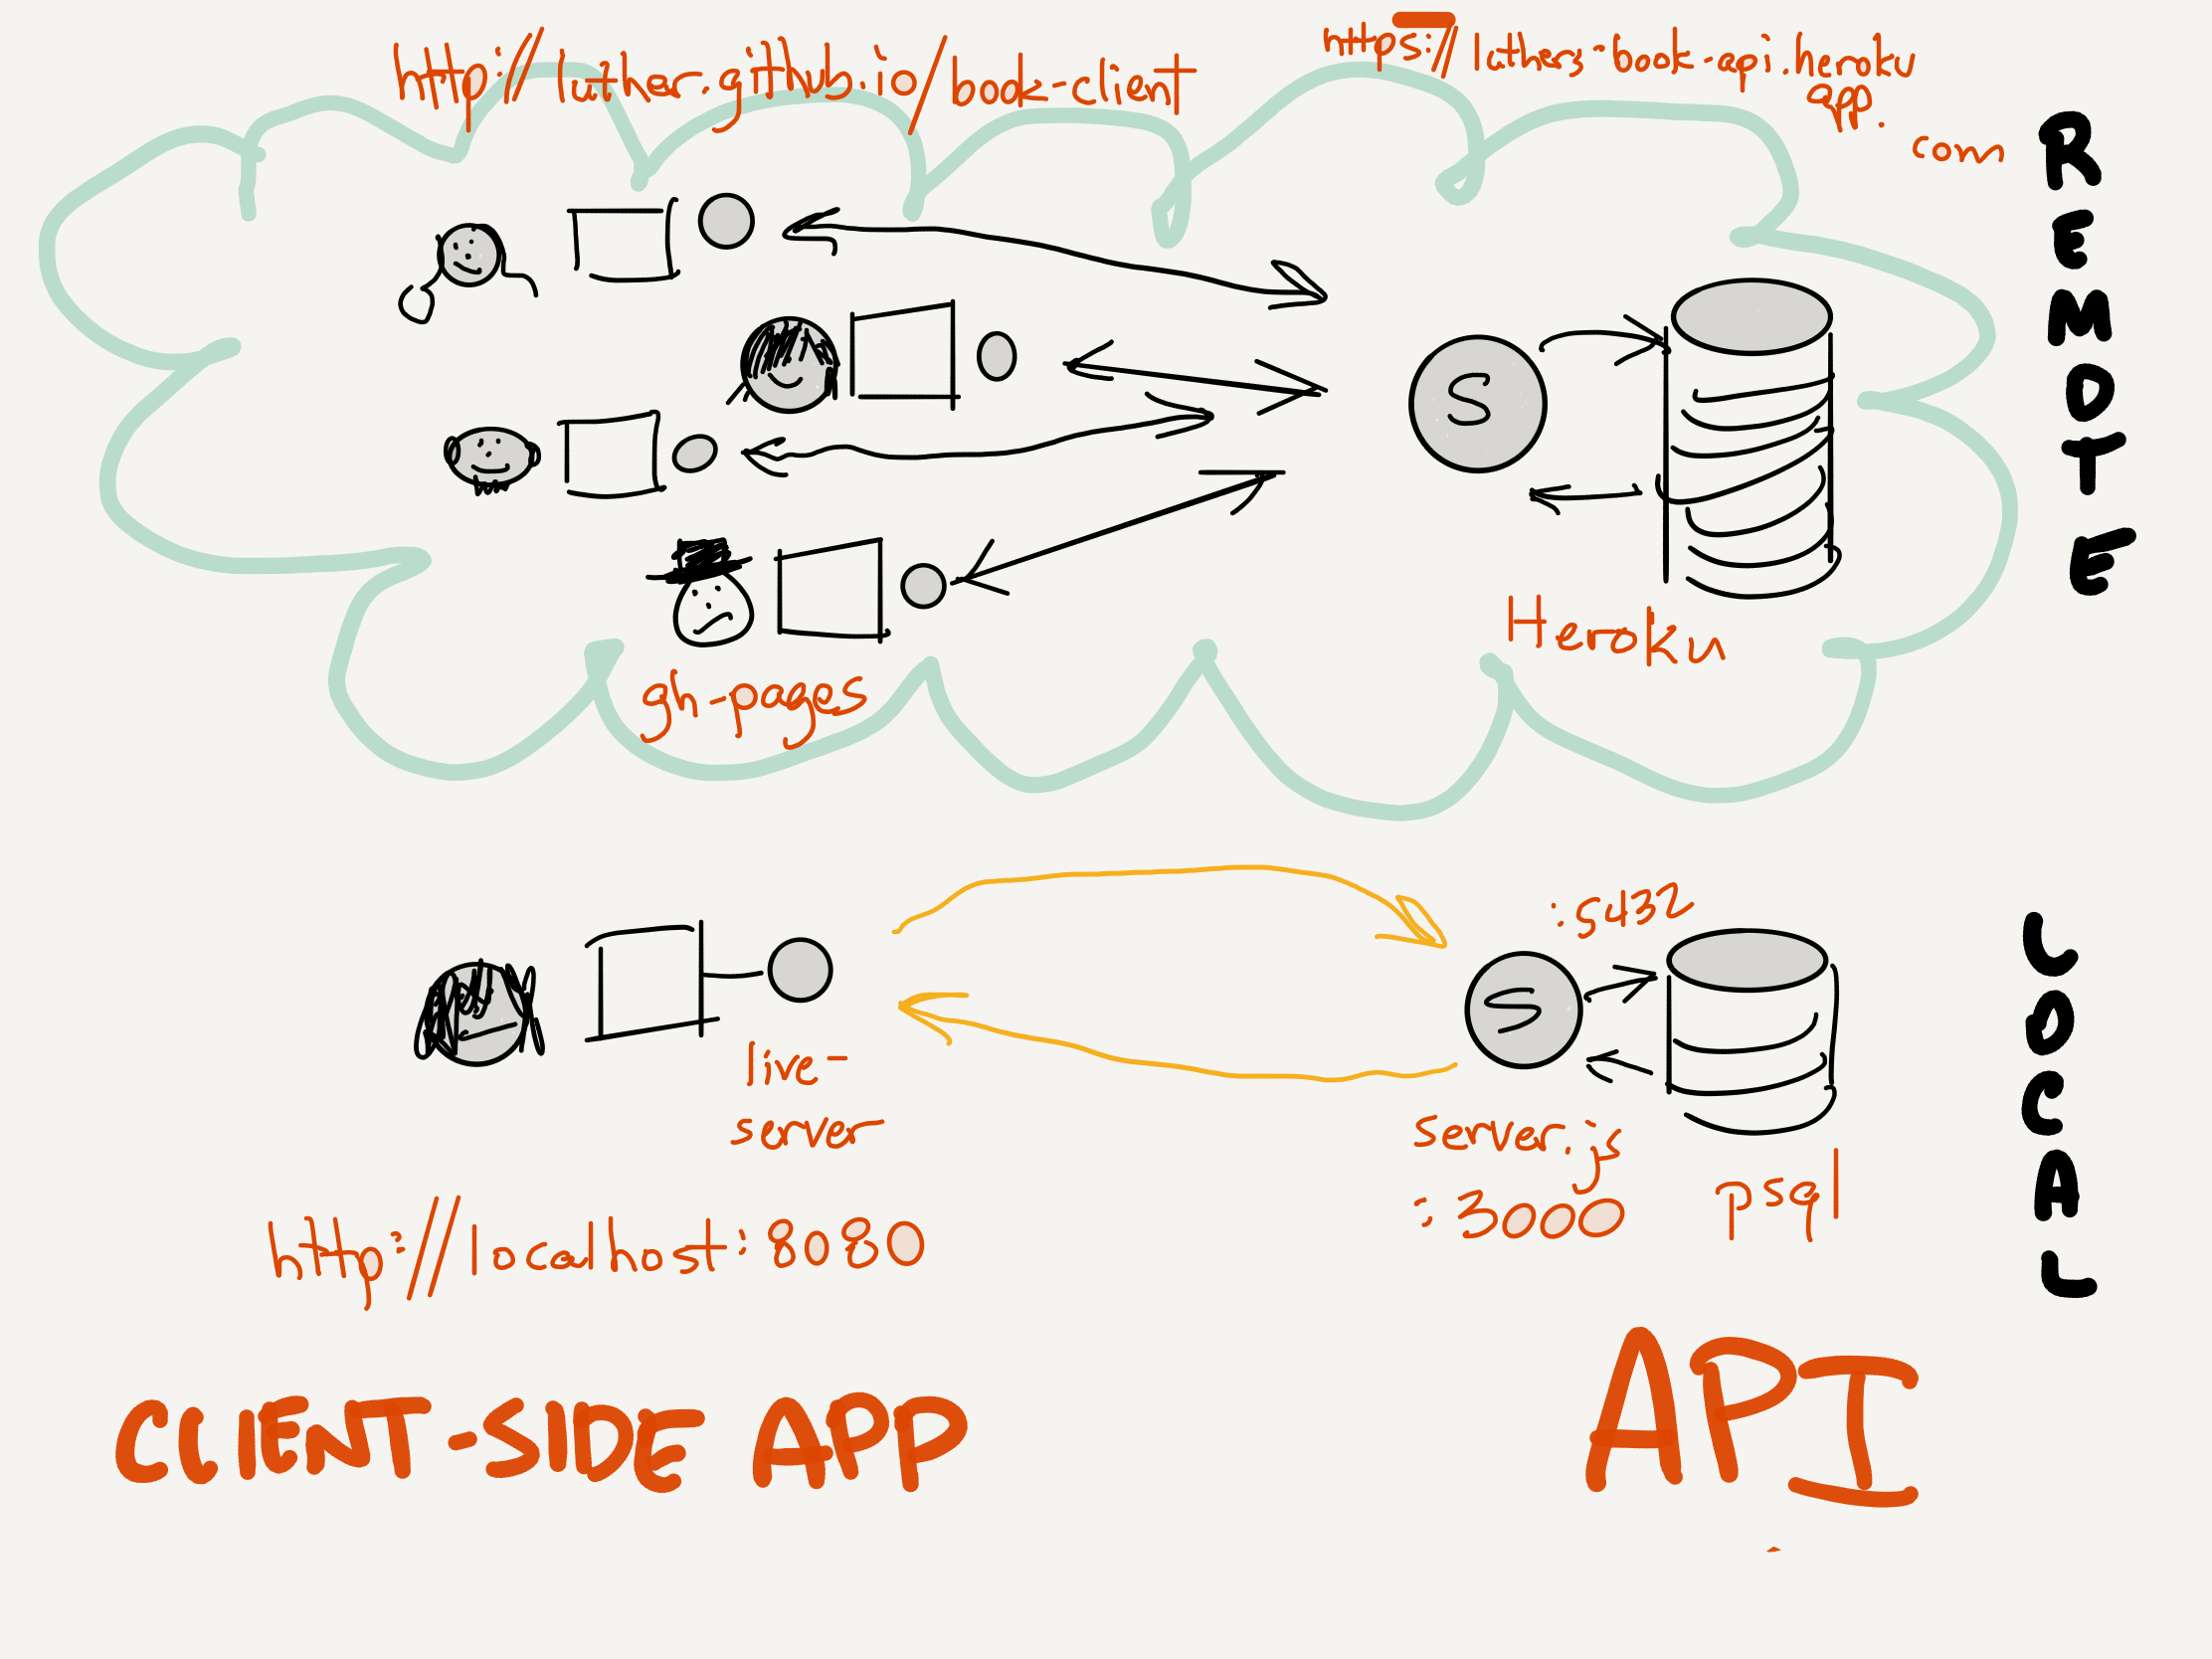 http://luther.github.io/book-client
https://luthers-book-api.heroku
app.
com
REMOTE
S
Heroku
gh-pages
:5432
S
live-
server
server.js
:3000
psql
http://localhost:8080
LOCAL
CLIENT-SIDE APP
API